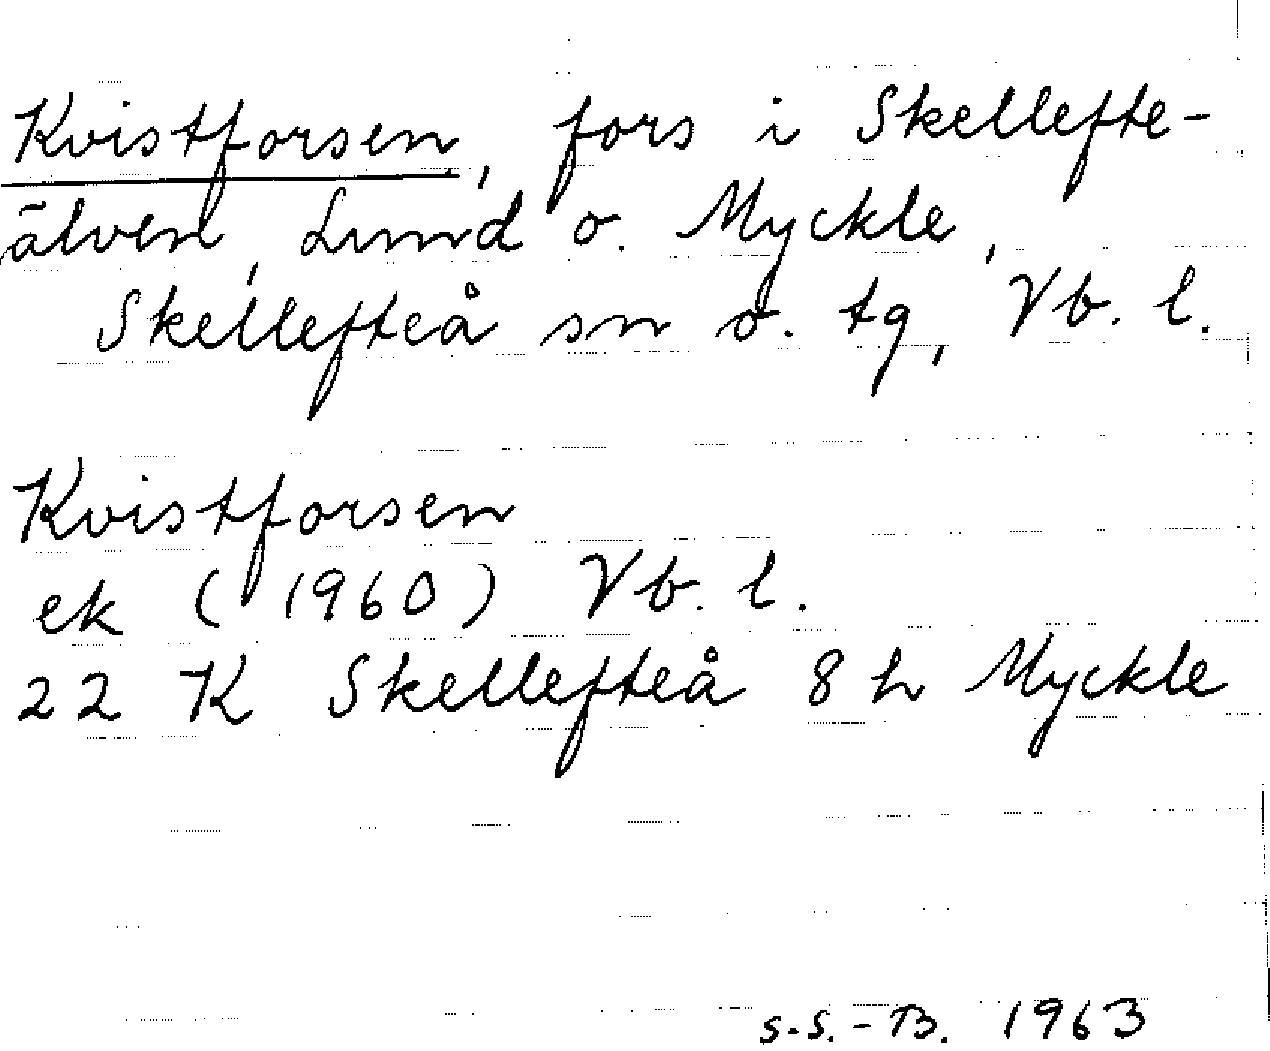 Kvistforsen, fors i Skellefte-
älven, Lund o. Myckle,
Skellefteå sn o. tg, Vb. l.
Kvistforsen
ek (1960) Vb. l.
22 K Skellefteå 8 h Myckle
S-S.-B. 1963